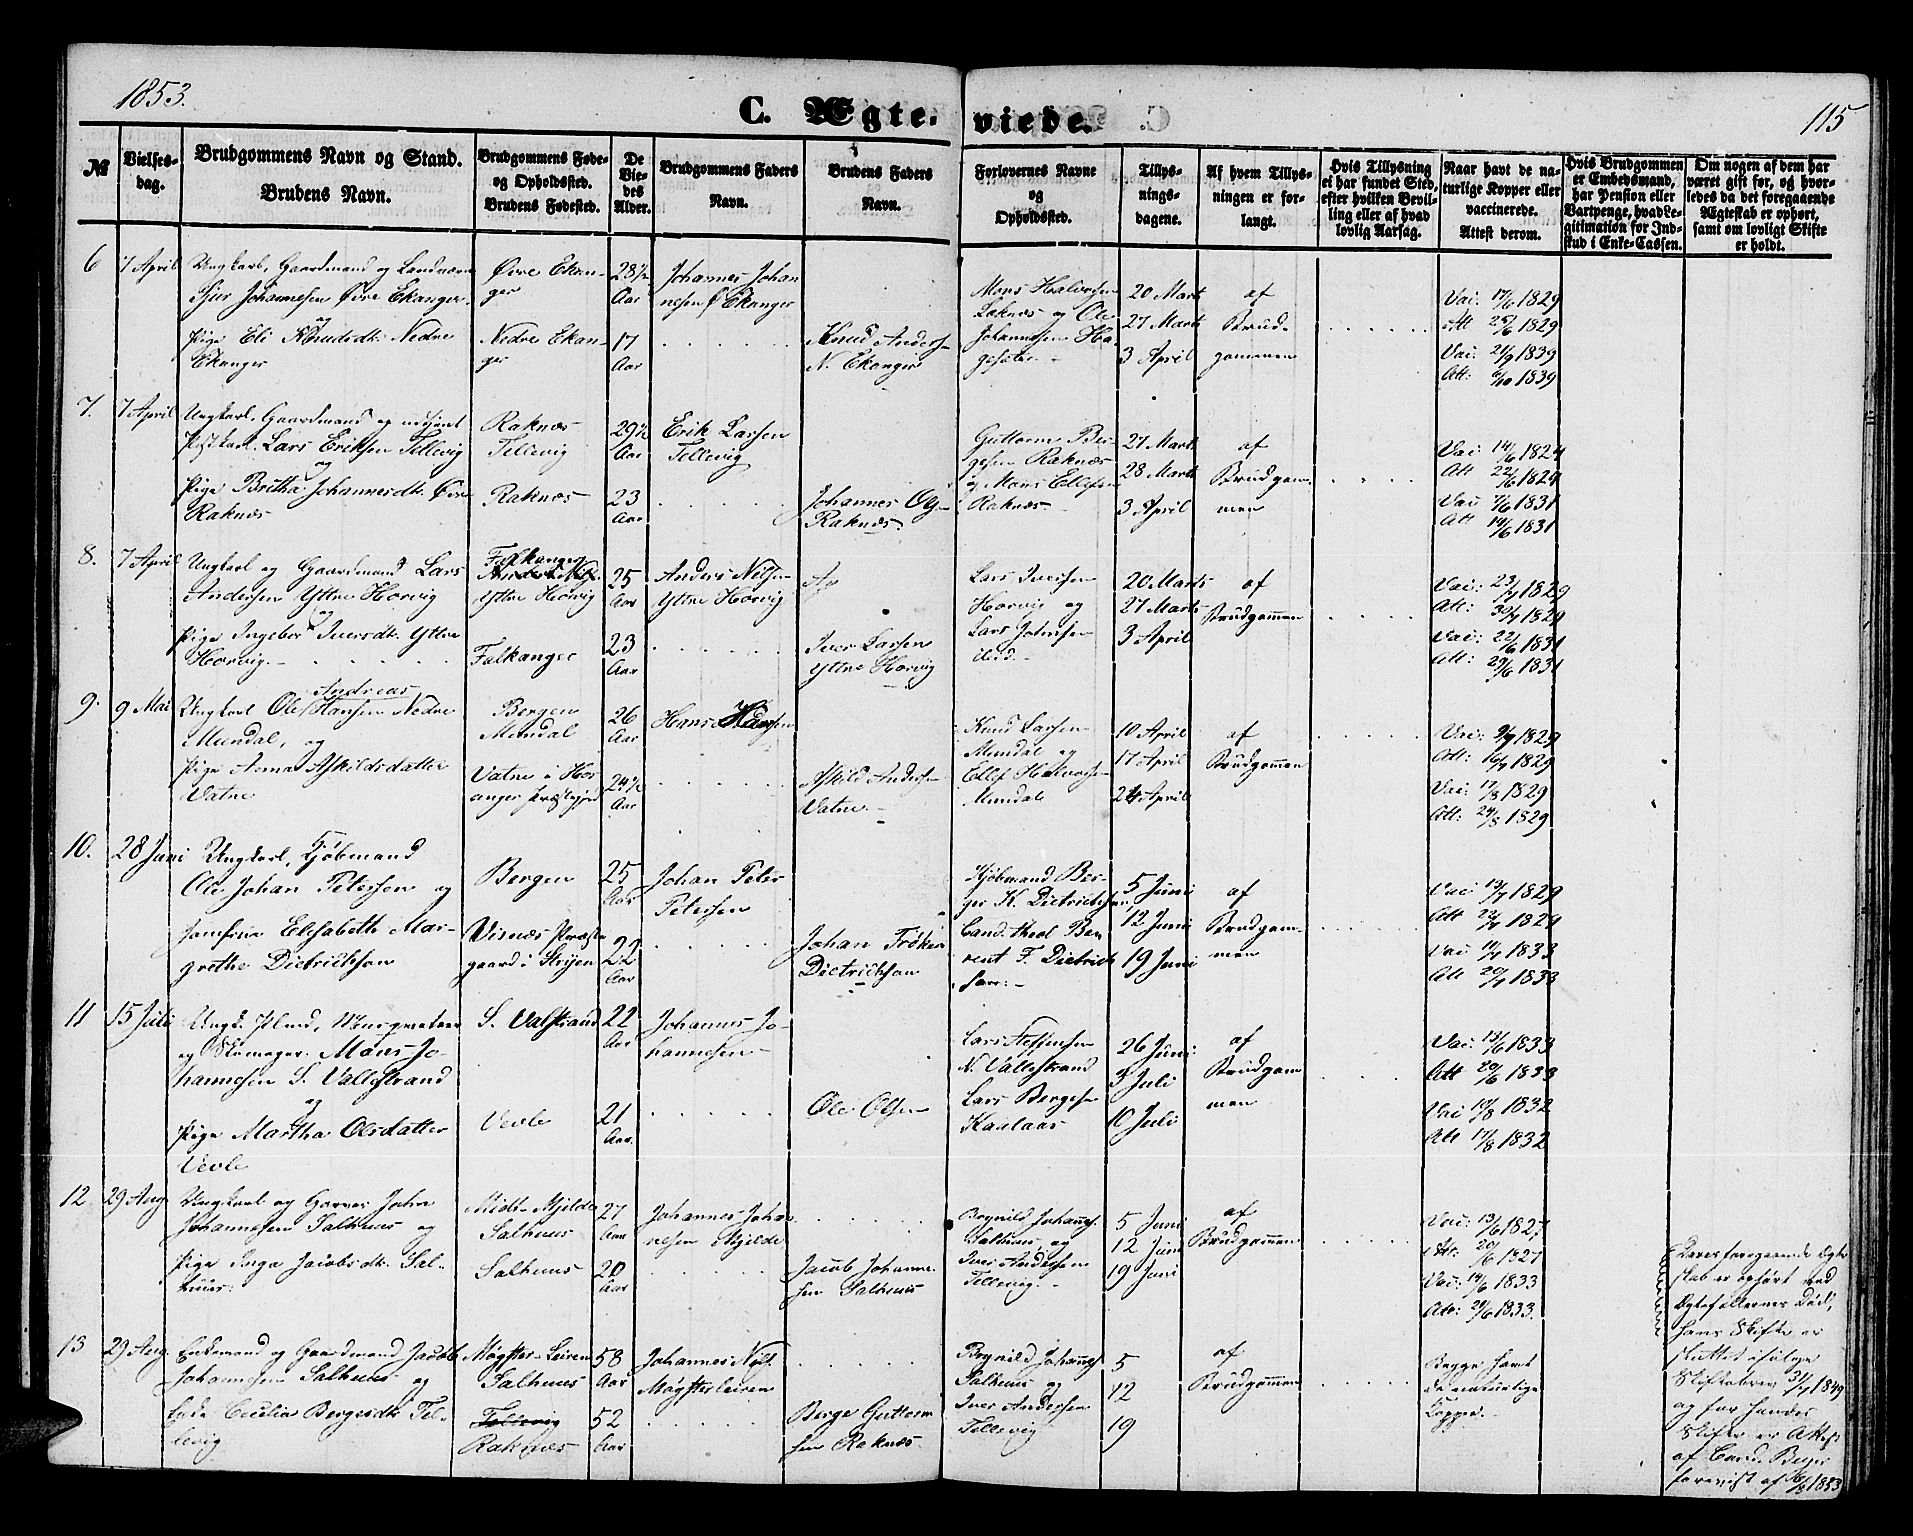 1853.
C. Ægte-
viede.
115
№
Vielses-
dag.
Brudgommens Navn og Stand.
Brudens Navn.
Brudgommens Føde-
og Opholdssted.
Brudens Fødested.
De
Vie-
des
Alder.
Brudgommens Faders
Navn.
Brudens Faders
Navn.
Forlovernes Navne
og
Opholdssted.
Tillys-
nings-
dagene.
Af hvem Tillys-
ningen er for-
langt.
Hvis Tillysning
ei har fundet Sted,
efter hvilken Bevil-
ling eller af hvad
lovlig Aarsag.
Naar havt de na-
turlige Kopper eller
vaccinerede.
Attest derom.
Hvis Brudgommen
er Embedsmand,
har Pension eller
Vartpenge, hvad Le-
gitimation for Ind-
skud i Enke-Cassen.
Om nogen af dem har
været gift før, og hvor-
ledes da det foregaaende
Ægteskab er ophørt,
samt om lovligt Skifte
er holdt.
6
7 April
Ungkarl, Gaardmand og
Sjur Johannesen Øvre Ekanger
og
Pige Eli Knudsdt. Nedre
Ekanger
Øvre Ekan-
ger
Nedre Ekan-
ger
28½
Aar
17
Aar
Johannes Johan
nesen Ø Ekanger
Knud Anders-
N. Ekanger
Mons Halvorsen
og Ole
Johannesen Ha-
20 Marts
27 Marts
3 April
af
Brud-
gommen
Vac: 17/6 1829
Att 25/6 1829
Vac: 21/9 1839
Att: 6/10 1839
7.
7 April
Ungkarl, Gaardmand og
Lars Eriksen Tellevig
og
Pige Britha Johannesdt. Øvre
Raknæs
Raknæs
Tellevig
Raknæs
29½
Aar
23
Aar
Erik Larsen
Tellevig
Johannes Ols-
Raknæs.
Guttorm Ber-
gesen Raknæs
og Mons Ellefsen
Raknæs
27 Marts
28 Marts
3 April
af
Brudgom-
men
Vac: 14/6 1824
Att 22/6 1824
Vac 7/6 1831
Att 14/6 1831
8.
7 April
Ungkarl og Gaardmand Lars
Andersen Yttre Horvig
og
Pige Ingebor Iversdt. Yttre
Horvig.
Falkanger
Yttre Horvig
Falkanger
25
Aar
23
Aar
Anders Nilsen
Yttre Horvig
Iver Larsen
Yttre Horvig
Lars Iversen
Horvig og
Lars Johnsen
ibid.
20 Marts
27 Marts
3 April
af
Brudgommen
Vac: 23/7 1829
Att: 30/7 1829
Vac: 22/6 1831
Att: 29/6 1831
9.
9 Mai
Andreas
Ungkarl Ole Hansen Nedre
Mundal, og
Pige Anna Askildsdatter
Vatne
Bergen
Mundal
Vatne i Hos
anger Præstegjeld
26
Aar
24½
Aar
Hans Hansen
Askild Andersen
Vatne
Knud Larsen
Mundal og
Ellef Halvorsen
Mundal
10 April
17 April
24 April
af
Brudgommen
Vac: 9/7 1829
Att: 16/7 1829
Vac: 17/8 1829
Att: 24/8 1829
10.
28 Juni
Ungkarl, Kjøbmand
Ole Johan Petersen og
Jomfrue Elisabeth Mar-
grethe Dietrichson
Bergen
Visnæs Præste
gaard i Stryen
25
Aar
22
Aar
Johan Peter
Petersen
Johan Frøken
Dietrichson
Kjøbmand Ber-
ger K. Dietrichson,
Cand. theol Ber
rent F. Dietrich
son
5 Juni
12 Juni
19 Juni
af
Brudgom-
men
Vac: 13/7 1829
Att 22/7 1829
Vac 14/7 1833
Att 20/7 1833
11
15 Juli
og Skomager. Mons Jo-
hannesen S. Vallestrand
og
Pige Martha Olsdatter
Vevle
S. Valstrand
Vevle
22
Aar
21
Aar
Johannes Jo-
hannesen
Ole Olsen
Lars Steffensen
N. Vallestrand
Lars Bergesen
Kaalaas
26 Juni
3 Juli
10 Juli
af
Brudgom
men
Vac: 13/6 1833
Att 20/6 1833
Vac 10/8 1832
Att 17/8 1832
12
29 Aug
Ungkarl og Garver John
Johannesen Salhuus og
Pige Inga Jacobsdt. Sal-
huus.
Midt-Mjelde
Salhuus
Salhuus
27
Aar
20
Aar
Johannes Johan
nesen Mjelde
Jacob Johanne
sen Salhuus
Brynild Johanns.
Salhuus og
Iver Andersen
Tellevig
5 Juni
12 Juni
19 Juni
af
Brudgommen
Vac: 13/6 1827
Att. 20/6 1827
Vac: 14/6 1833
Att: 20/6 1833.
13
29 Aug.
Enkemand og Gaardmand Jacob
Johannesen Salhuus og
Enke Cecilia Bergesdt. Tel-
levig
Møgster-Leiren
Salhuus
Tellevig
Raknæs
58
Aar
52
Aar
Johannes Nils.
Møgsterleiren
Berge Guttorm
sen Raknæs
Brynild Johanns
Salhuus og
Iver Andersen
Tellevig
5
12
19
af
Brudgommen
Begge havt
de naturlige
Kopper.
Deres foregaaende Ægte
skab er ophørt ved
Ægtefællernes Død,
hans Skifte er
sluttet ifølge
Skiftebrev 31/7 1849
og for hendes
Skifte er Attest
af Cand. Beyer
forevist af 16/8 1853